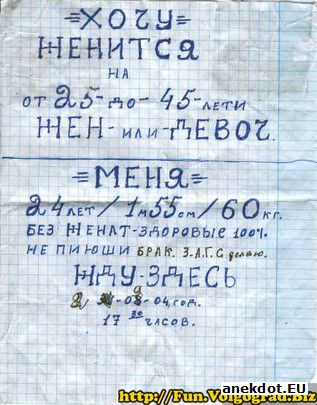 =ХОЧУ=
ЖЕНИТСЯ
НА
ОТ 25-ДО-45-ЛЕТИ
ЖЕН-ИЛИ-ДЕВОЧ.
=МЕНЯ=
24 ЛЕТ/1м55см/60 кг.
БЕЗ ЖЕНАТ-ЗДОРОВЫЕ 100%
НЕ ПИЮШИ БРАК. З.А.Г.С делаю.
ЖДУ-ЗДЕСЬ
04.год.
17 30 ЧАСОВ.
anekdot.EU
http://Fun.Volgograd.Biz